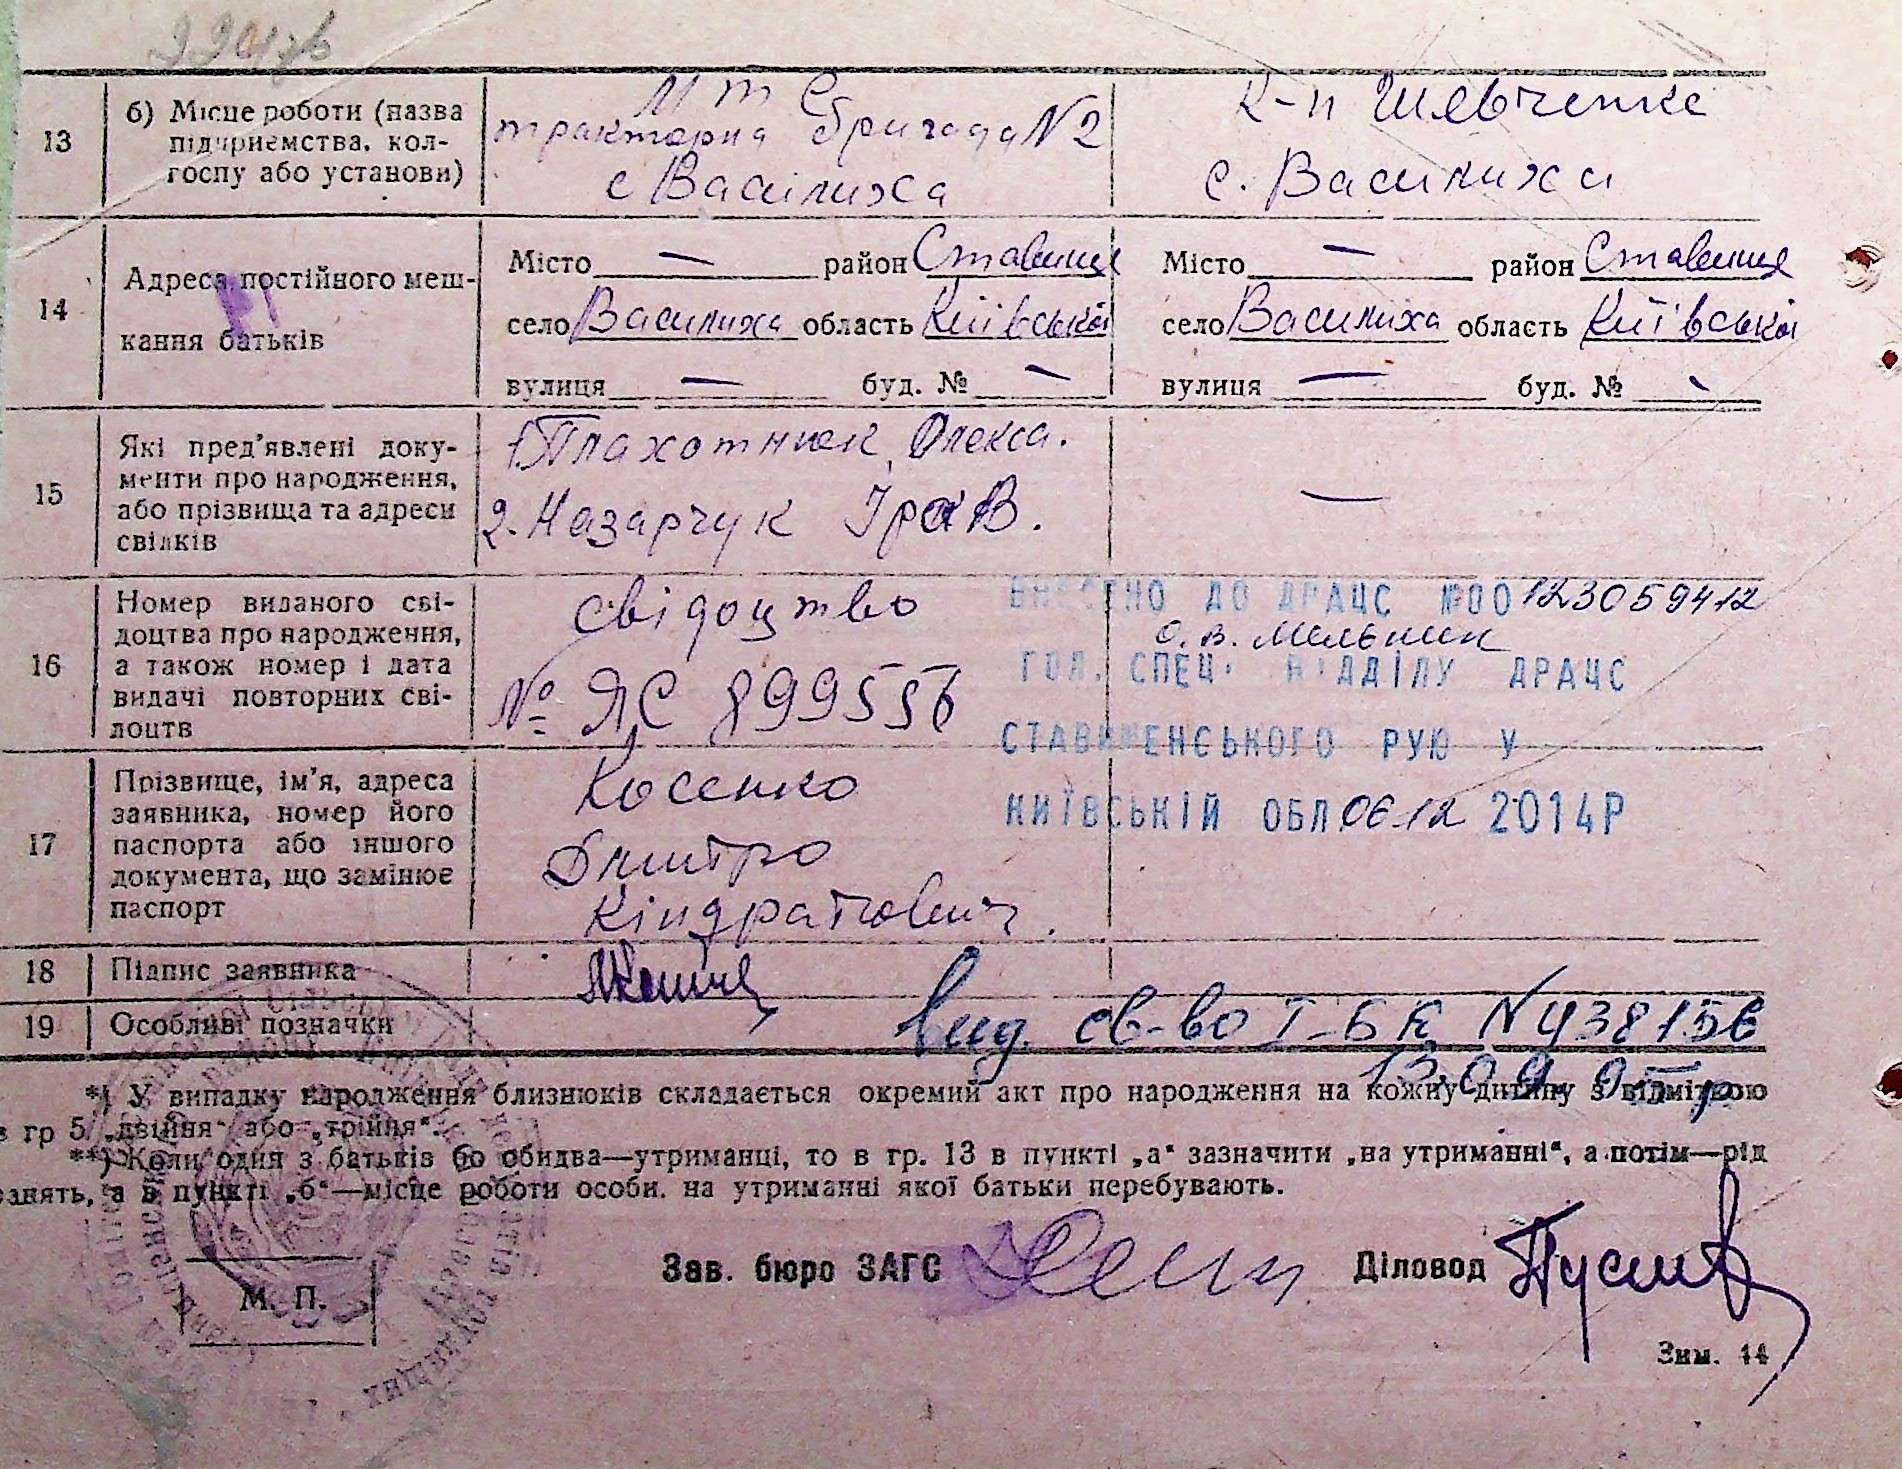 13
б) Місце роботи (назва
підприємства, кол-
госпу або установи)
М т С
тракторна бригада N2
с Василиха
К-п Шевченка
с. Василиха
14
Адреса постійного меш-
кання батьків
Місто — район Ставище
село Василиха область Київської
вулиця — буд. № —
Місто — район Ставище
село Василиха область Київської
вулиця — буд. № -
15
Які пред'явлені доку-
менти про народження,
або прізвища та адреси
свідків
1. Плахотнюк Олекса.
2. Назарчук В.
—
16
Номер виданого сві-
доцтва про народження,
а також номер і дата
видачі повторних сві-
доцтв
свідоцтво
№ ЯС 899556
ВНЕСЕНО ДО ДРАЦС №00123059412
О. В. Мельник
ГОЛ. СПЕЦ. ВІДДІЛУ ДРАЦС
СТАВИЩЕНСЬКОГО РУЮ У
КИЇВСЬКІЙ ОБЛ. 06 12 2014Р
17
Прізвище, ім'я, адреса
заявника, номер його
паспорта або іншого
документа, що замінює
паспорт
Косенко
Дмитро
Кіндратович.
18
Підпис заявника
19
Особливі позначки
вид. св-во І-БК N438156
13.09.05 р
*) У випадку народження близнюків складається окремий акт про народження на кожну дитину з відміткою
в гр 5 „двійня“ або „трійня“.
**) Коли одня з батьків бо обидва—утриманці, то в гр. 13 в пункті „а“ зазначити „на утриманні“, а потім—рід
занять, а в пункті „б“—місце роботи особи. на утриманні якої батьки перебувають.
М. П.
Зав. бюро ЗАГС
Діловод
Зим. 14